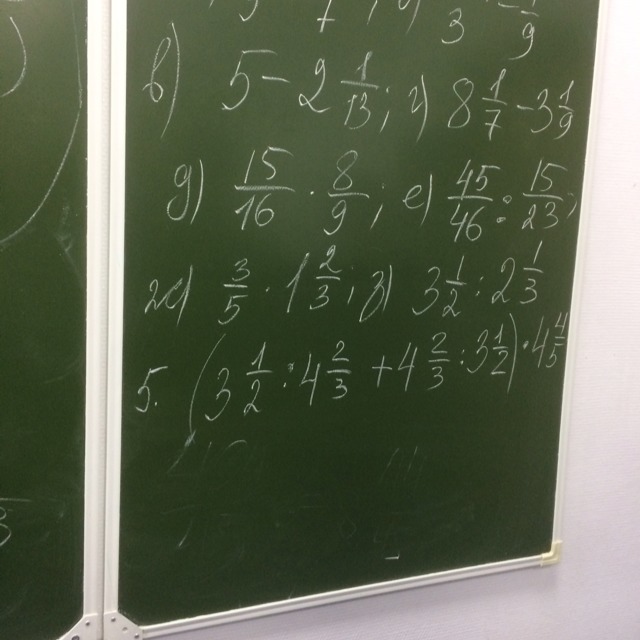 в) 5 - 2 1/13; г) 8 1/7 - 3 1/9
д) 15/16 · 8/9; е) 45/46 : 15/23;
ж) 3/5 · 1 2/3; з) 3 1/2 : 2 1/3
5. (3 1/2 : 4 2/3 + 4 2/3 : 3 1/2) · 4 4/5